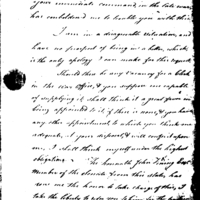 your immediate command, in the late war,
has emboldened me to trouble you with this
I am in a disagreeable situation, and
have no prospect of being in a better, which
is the only apology I can make for this request
Should there be any vacancy for a Clerk
in the war office, & you suppose me capable
of supplying it, I shall think it a great favor in
being appointed to it, if there is none, & you have
any other appointment, to which you think me
adequate, in your disposal, & will confer it upon
me. I shall think myself under the highest
obligations. The honorable John Vining Esqr
Member of the Senate from this state, has
done me the honor to take charge of this, I
take the liberty to refer you to him for